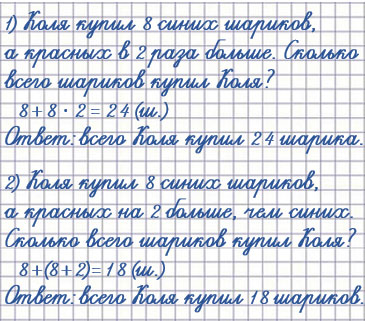 1) Коля купил 8 синих шариков,
а красных в 2 раза больше. Сколько
всего шариков купил Коля?
8 + 8 · 2 = 24 (ш.)
Ответ: всего Коля купил 24 шарика.
2) Коля купил 8 синих шариков,
а красных на 2 больше, чем синих.
Сколько всего шариков купил Коля?
8+(8+2)=18 (ш.)
Ответ: всего Коля купил 18 шариков.